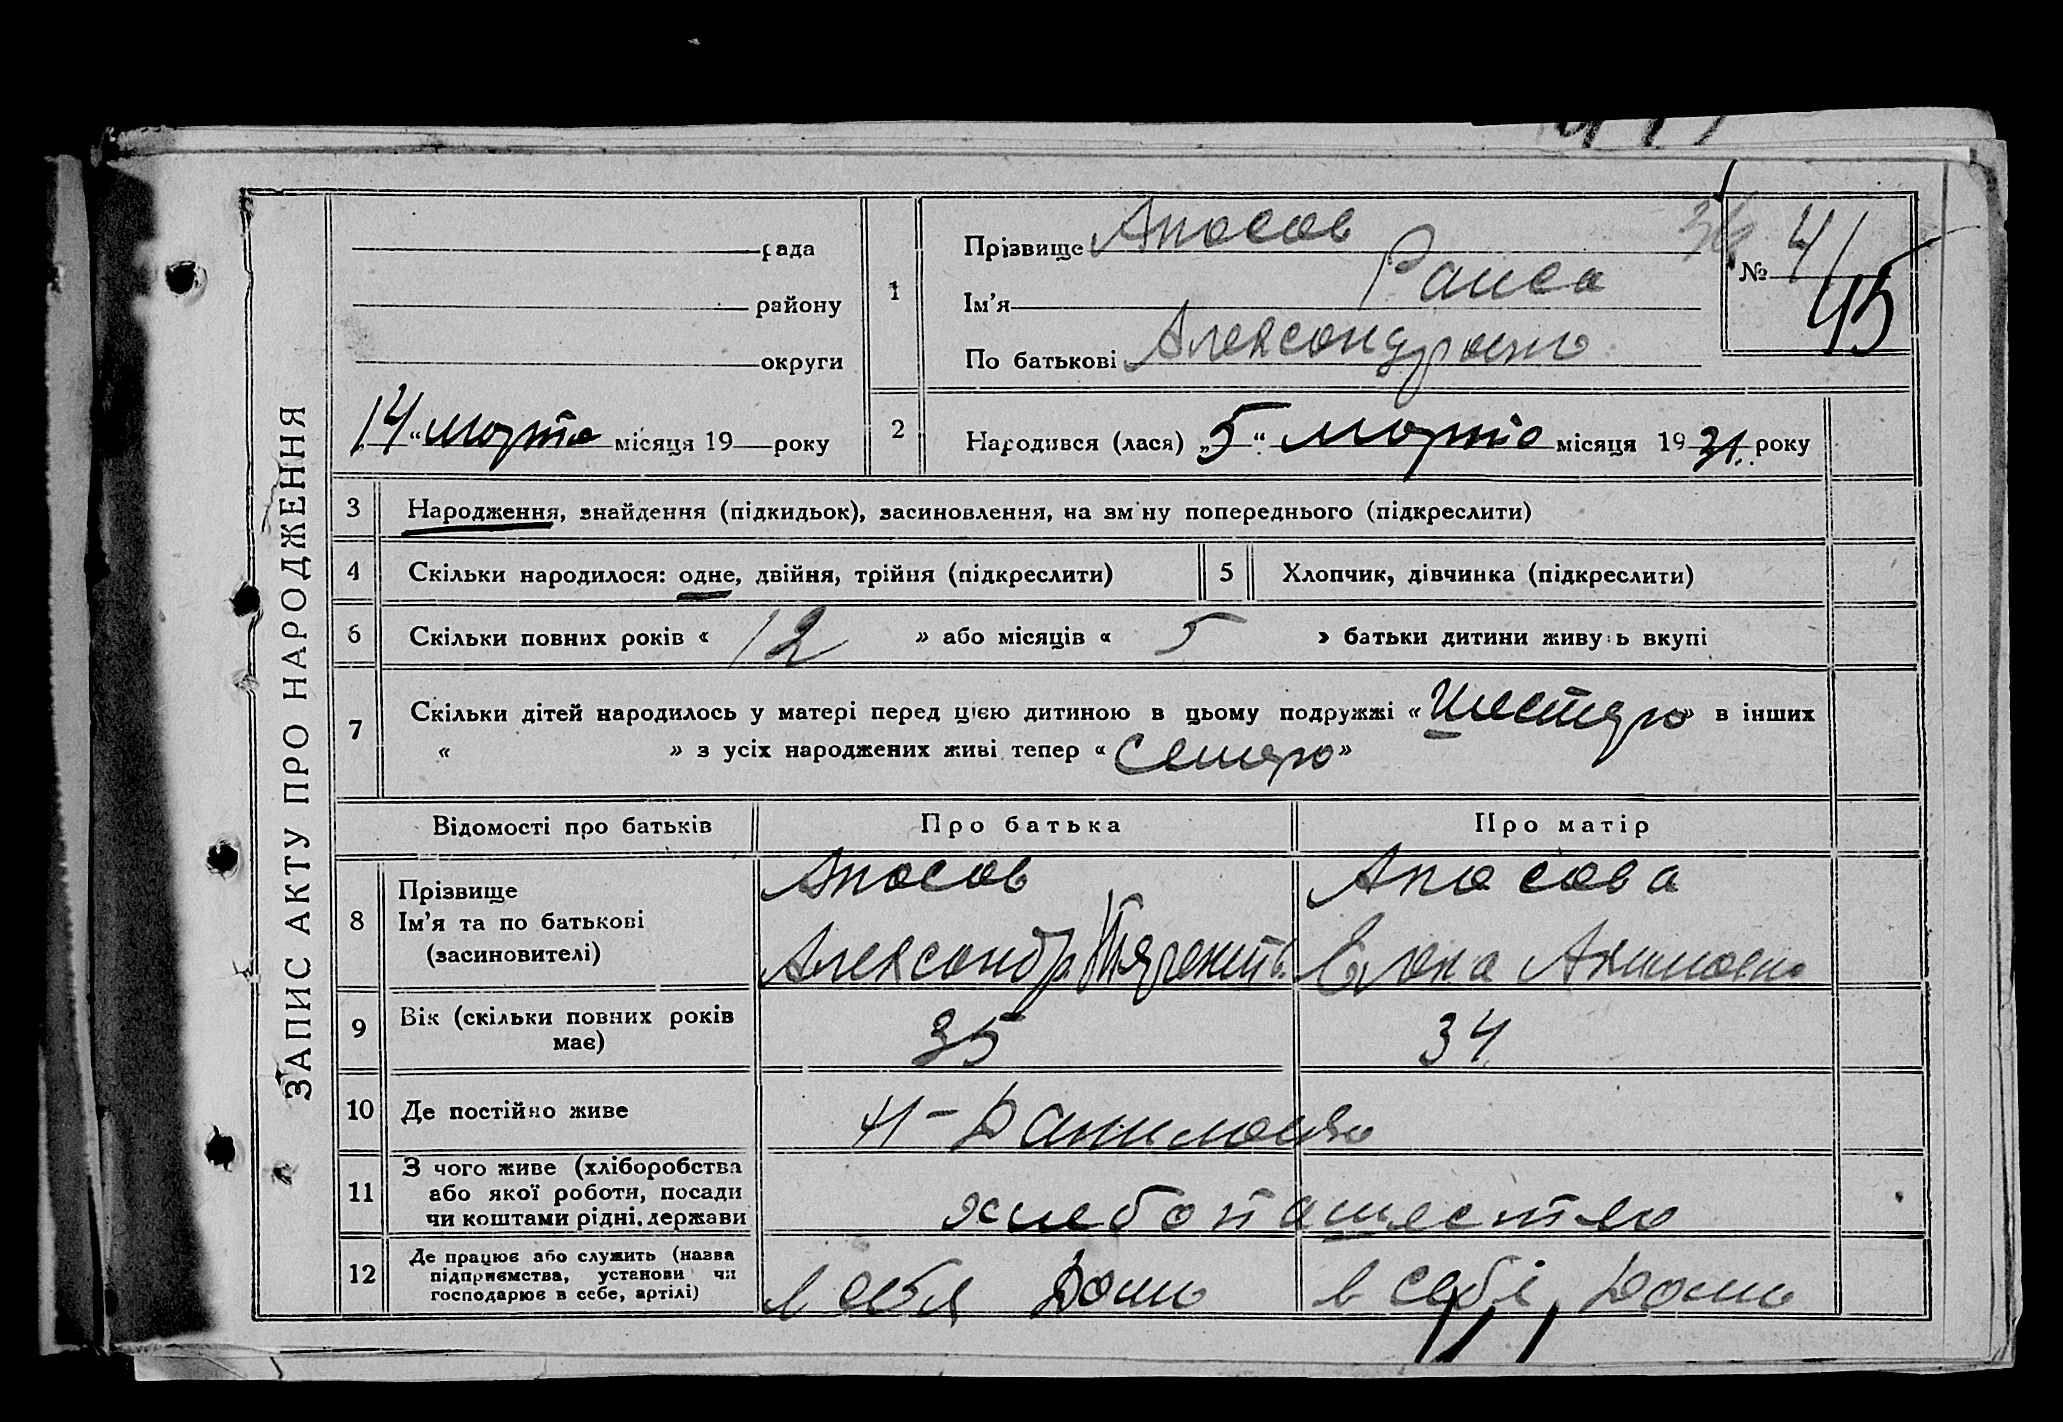 ЗАПИС АКТУ ПРО НАРОДЖЕННЯ
рада
району
округи
14 “ марта місяця 19 року
1
Прізвище Апасов
Ім’я Раиса
По батькові
№ 41
45
2
Народився (лася) „5“ марта місяця 1931. року
3 Народження, знайдення (підкидьок), засиновлення, на зміну попереднього (підкреслити)
4 Скільки народилося: одне, двійня, трійня (підкреслити) 5 Хлопчик, дівчинка (підкреслити)
6 Скільки повних років « 12 » або місяців « 5 » батьки дитини живуть вкупі
7 Скільки дітей народилось у матері перед цією дитиною в цьому подружжі « » в інших
« » з усіх народжених живі тепер « »
Відомості про батьків Про батька Про матір
8 Прізвище
Ім’я та по батькові
(засиновителі)
Апасов
Александр
Апасова
Елена
9 Вік (скільки повних років
має)
35 34
10 Де постійно живе
11 З чого живе (хліборобства
або якої роботи, посади
чи коштами рідні, держави
12 Де працює або служить (назва
підприємства, установи чи
господарює в себе, артілі)
в себя дома
в себі дома